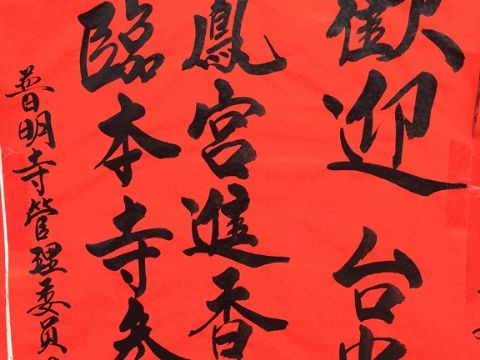 歡迎 台中
鳳宮進香
臨本寺參
普明寺管理委員